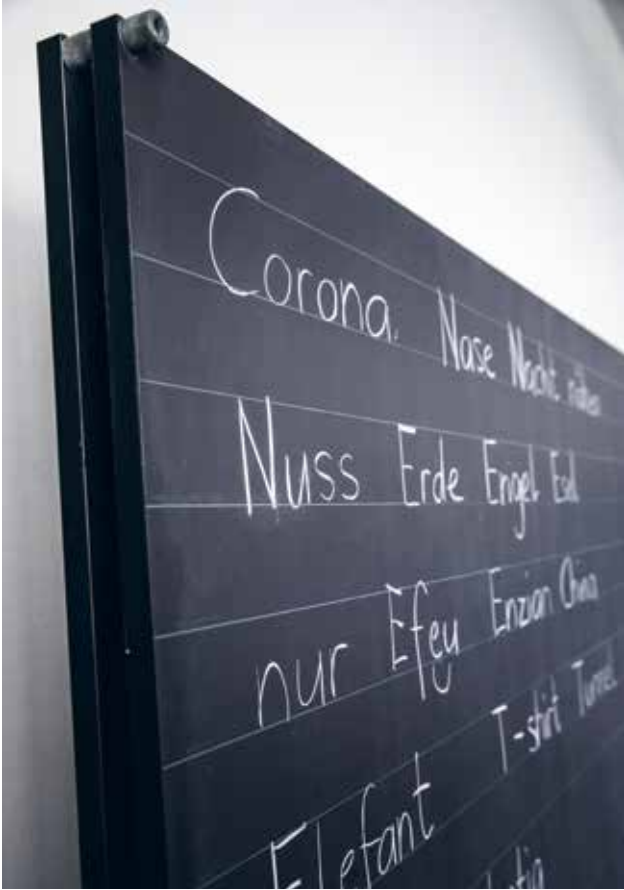 Corona. Nase Nacht nähen
Nuss Erde Engel Esel
nur Efeu Enzian China
Elefant T-shirt Tunnel